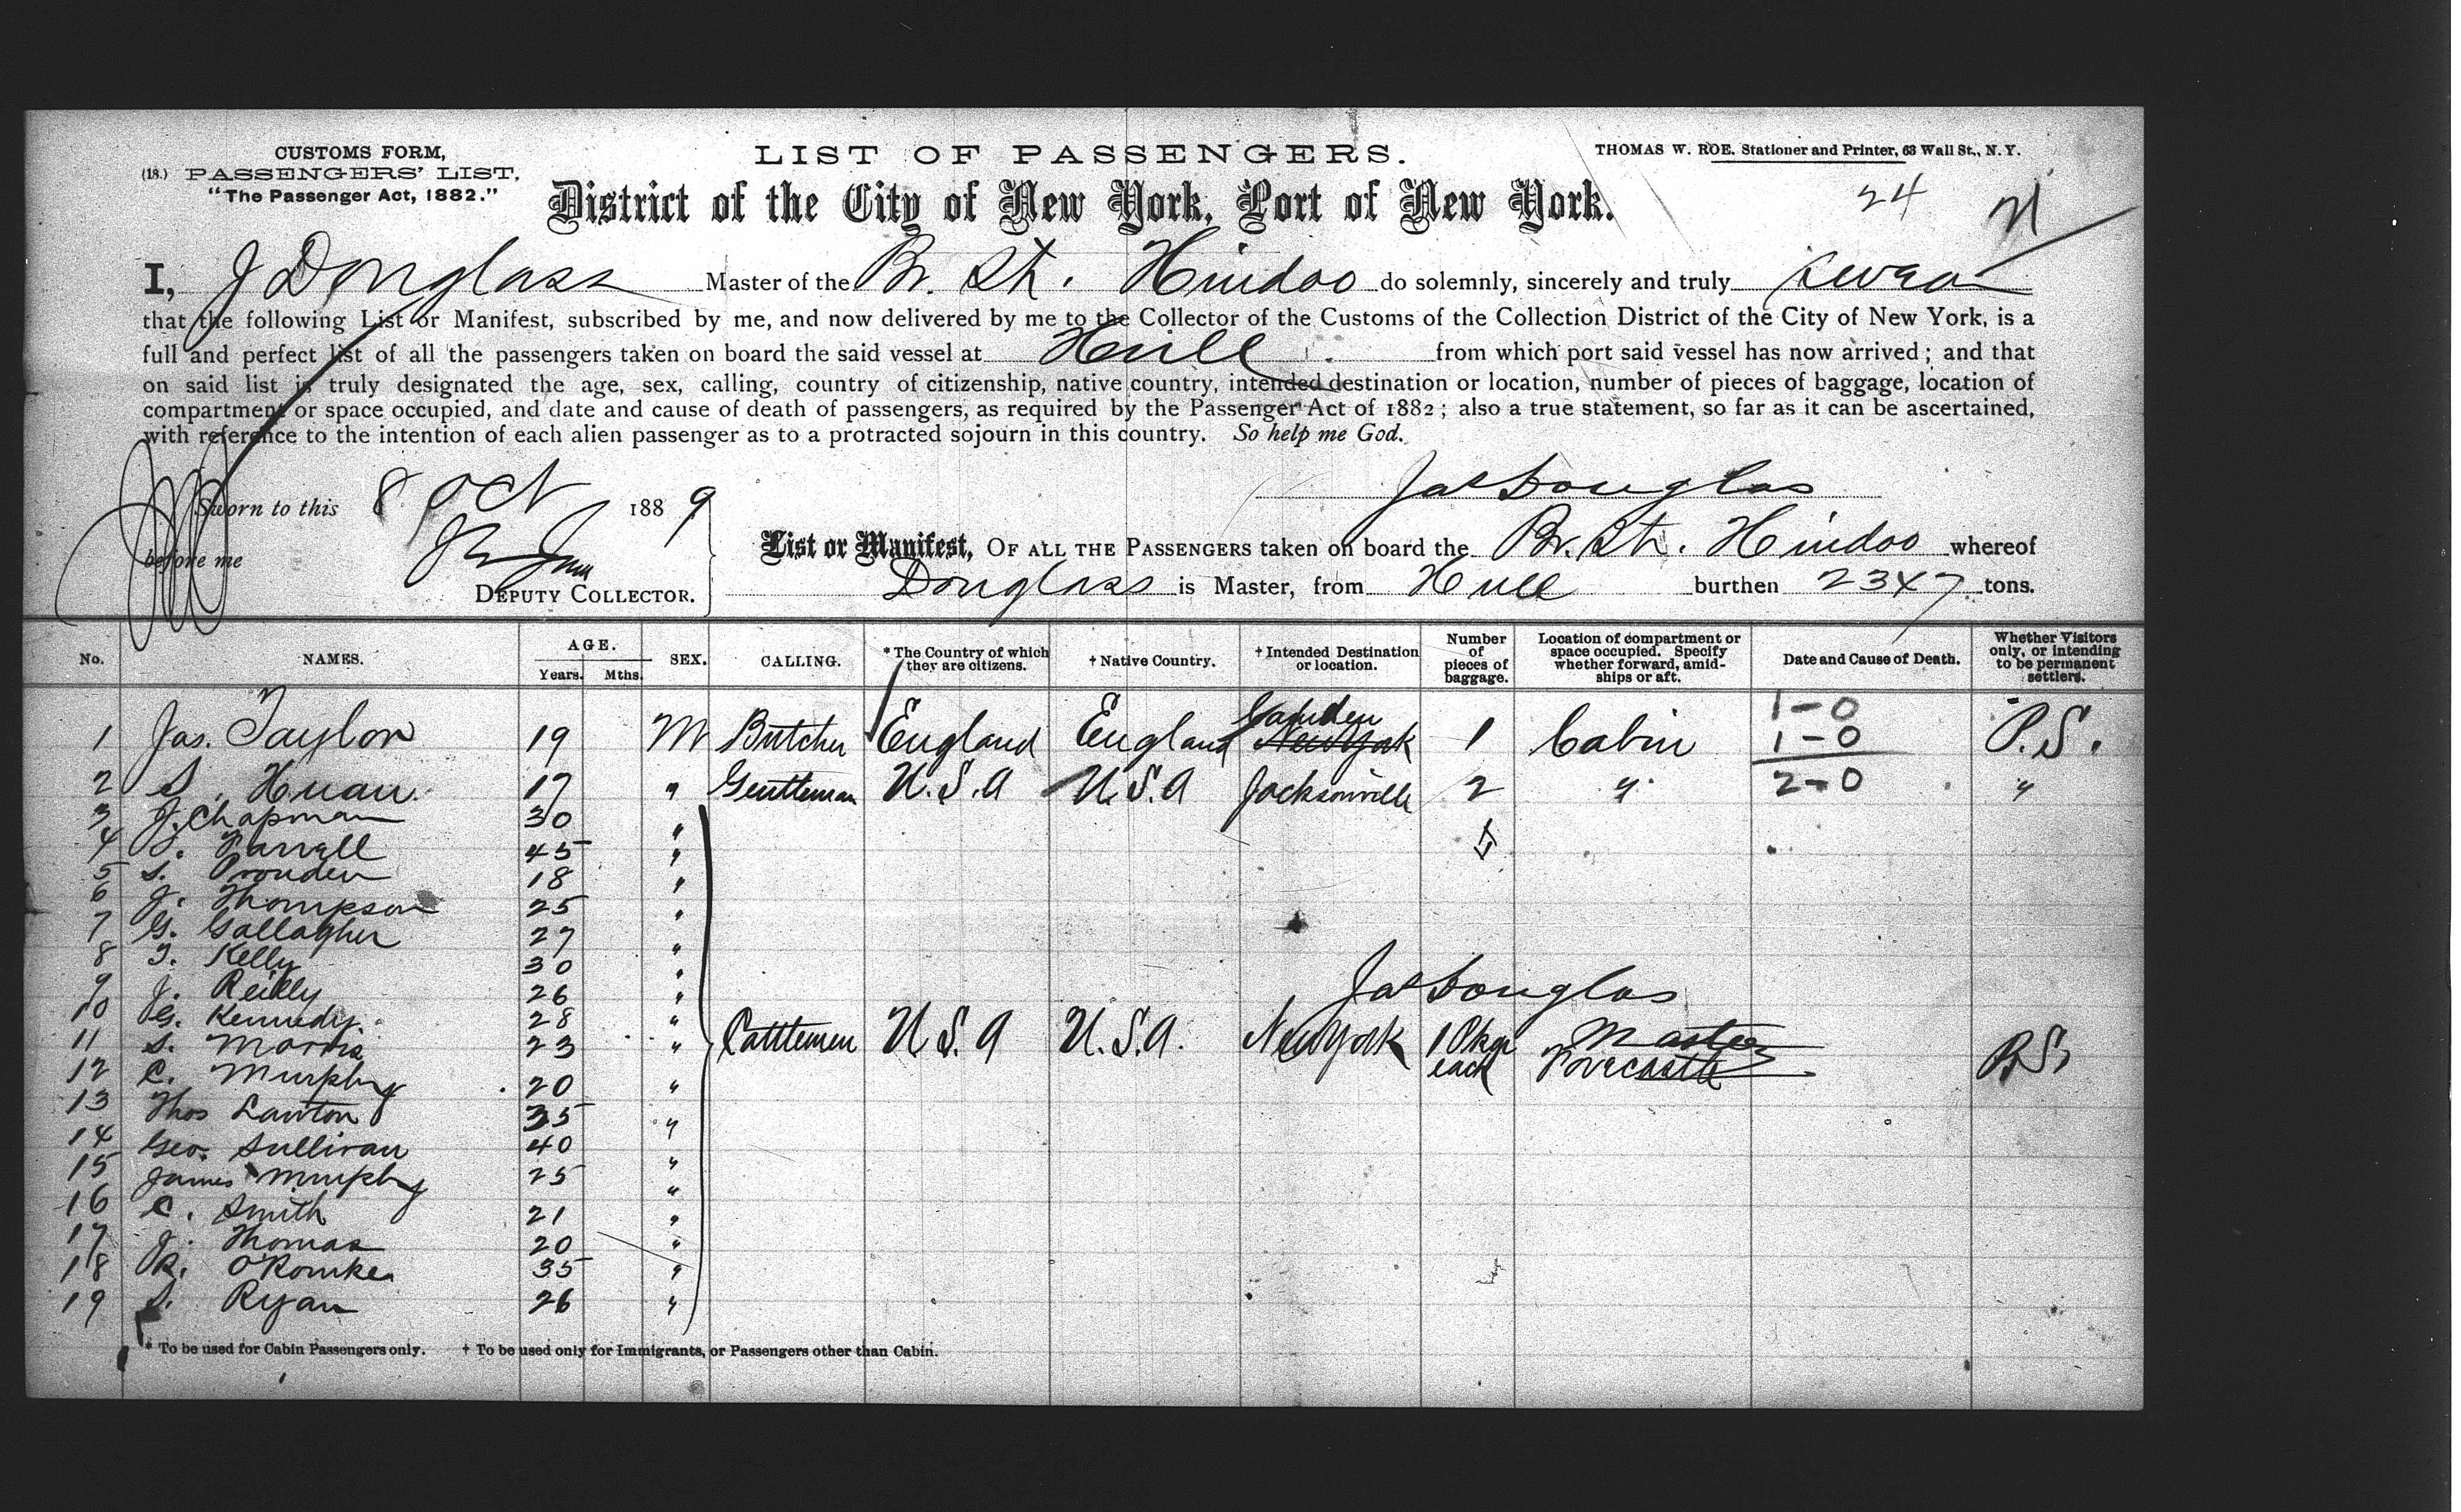 CUSTOMS FORM,
(18.) PASSENGERS' LIST,
"The Passenger Act, 1882."
LIST OF PASSENGERS.
THOMAS W. ROE, Stationer and Printer, 63 Wall St., N.Y.
District of the City of New York, Port of New York.
24
I, J Douglass Master of the Br. St. Hindoo do solemnly, sincerely and truly swear
that the following List or Manifest, subscribed by me, and now delivered by me to the Collector of the Customs of the Collection District of the City of New York, is a
full and perfect list of all the passengers taken on board the said vessel at Hull from which port said vessel has now arrived; and that
on said list is truly designated the age, sex, calling, country of citizenship, native country, intended destination or location, number of pieces of baggage, location of
compartment or space occupied, and date and cause of death of passengers, as required by the Passenger Act of 1882; also a true statement, so far as it can be ascertained,
with reference to the intention of each alien passenger as to a protracted sojourn in this country. So help me God.
Jas Douglas
Sworn to this 8 Oct 1889
before me
DEPUTY COLLECTOR.
List or Manifest, OF ALL THE PASSENGERS taken on board the Br. St. Hindoo whereof
Douglass is Master, from Hull burthen 2347 tons.
No. NAMES. AGE. Years. Mths. SEX. CALLING. * The Country of which they are citizens. † Native Country. † Intended Destination or location. Number of pieces of baggage. Location of compartment or space occupied. Specify whether forward, amidships or aft. Date and Cause of Death. Whether Visitors only, or intending to be permanent settlers.
Camden 1-0
1 Jas. Taylor 19 M Butcher England England New York 1 Cabin 1-0 P.S.
2 S. 17 " Gentleman U.S.A U.S.A Jacksonville 2 " 2-0 "
3 J. Chapman 30 "
4 Farrell 45 "
5 S. 18 "
6 J. Thompson 25 "
7 G. Gallagher 27 "
8 T. Kelly 30 "
9 J. Reilly 26 "
Jas Douglas
10 G. Kennedy. 28 "
Master
11 S. Morris 23 " Cattlemen U.S.A U.S.A. New York 1 Pkge each Forecastle P.S.
12 C. Murphy 20 "
13 Thos Lawton 35 "
14 Geo. Sullivan 40 "
15 James Murphy 25 "
16 C. Smith 21 "
17 J. Thomas 20 "
18 R. O'Rourke 35 "
19 S. Ryan 26 "
* To be used for Cabin Passengers only. † To be used only for Immigrants, or Passengers other than Cabin.